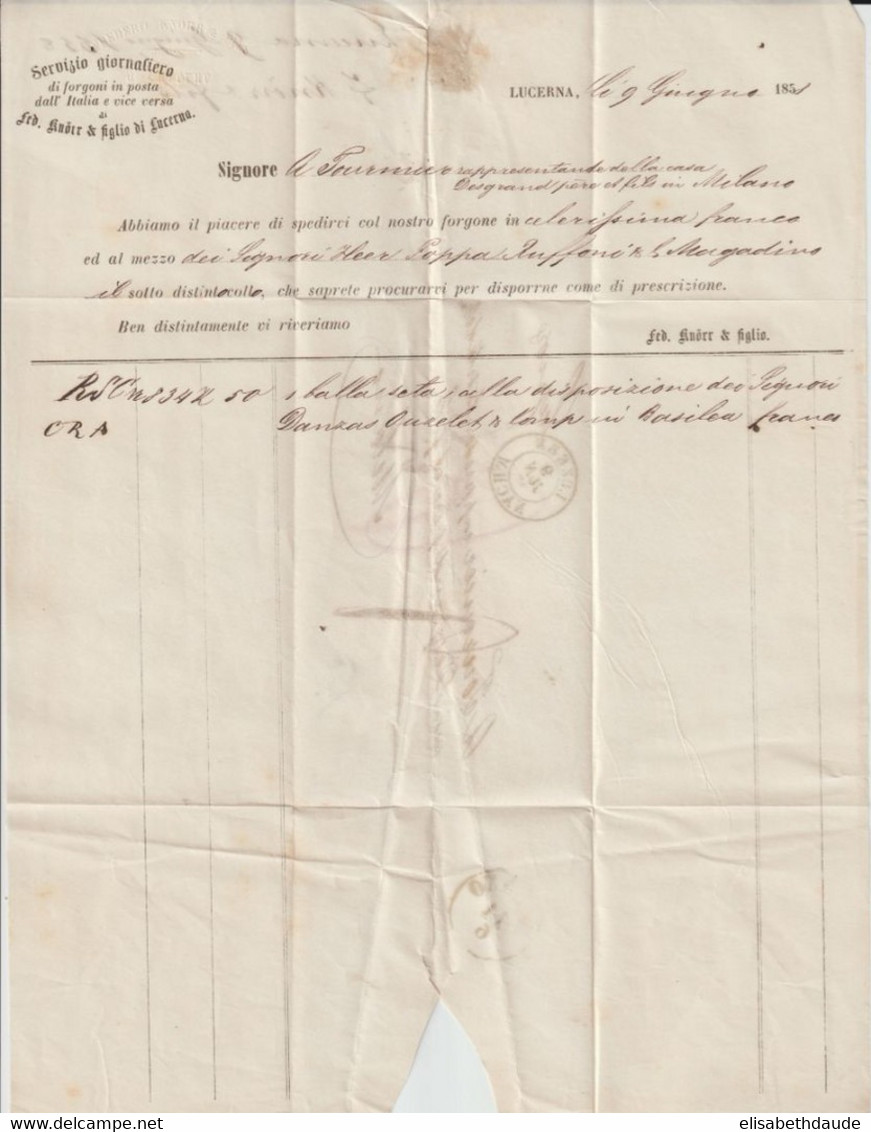 Servizio giornaliero
di forgoni in posta
dall' Italia e vice versa
di
Fed. Knörr & figlio di Lucerna.
LUCERNA, li 9 Giugno 185
Signore A Fournier rappresentante della casa
Desgrand père et fils in Milano
Abbiamo il piacere di spedirvi col nostro forgone in celerissima franco
ed al mezzo dei Signori Heer Poppa, Ruffoni & C Magadino
il sotto distinto collo, che saprete procurarvi per disporrne come di prescrizione.
Ben distintamente vi riveriamo
Fed. Knörr & figlio.
50 1 balla seta, alla disposizione dei Signori
Danzas Ouzelet & Comp in Basilea franco
LUZERN
elisabethdaude